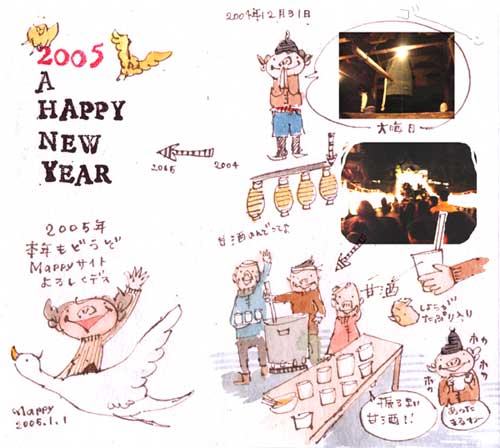 2005
A
HAPPY
NEW
YEAR
2005 2004
2005年
本年もどうど
Mappyサイト
よろしくデス
Mappy
2005.1.1
2004年12月31日
ゴーン
大晦日
甘酒のんでって
甘酒
しょうが
たっぷり入り
振るまい
甘酒!!
ホッ
ホッ
あったまるす〜